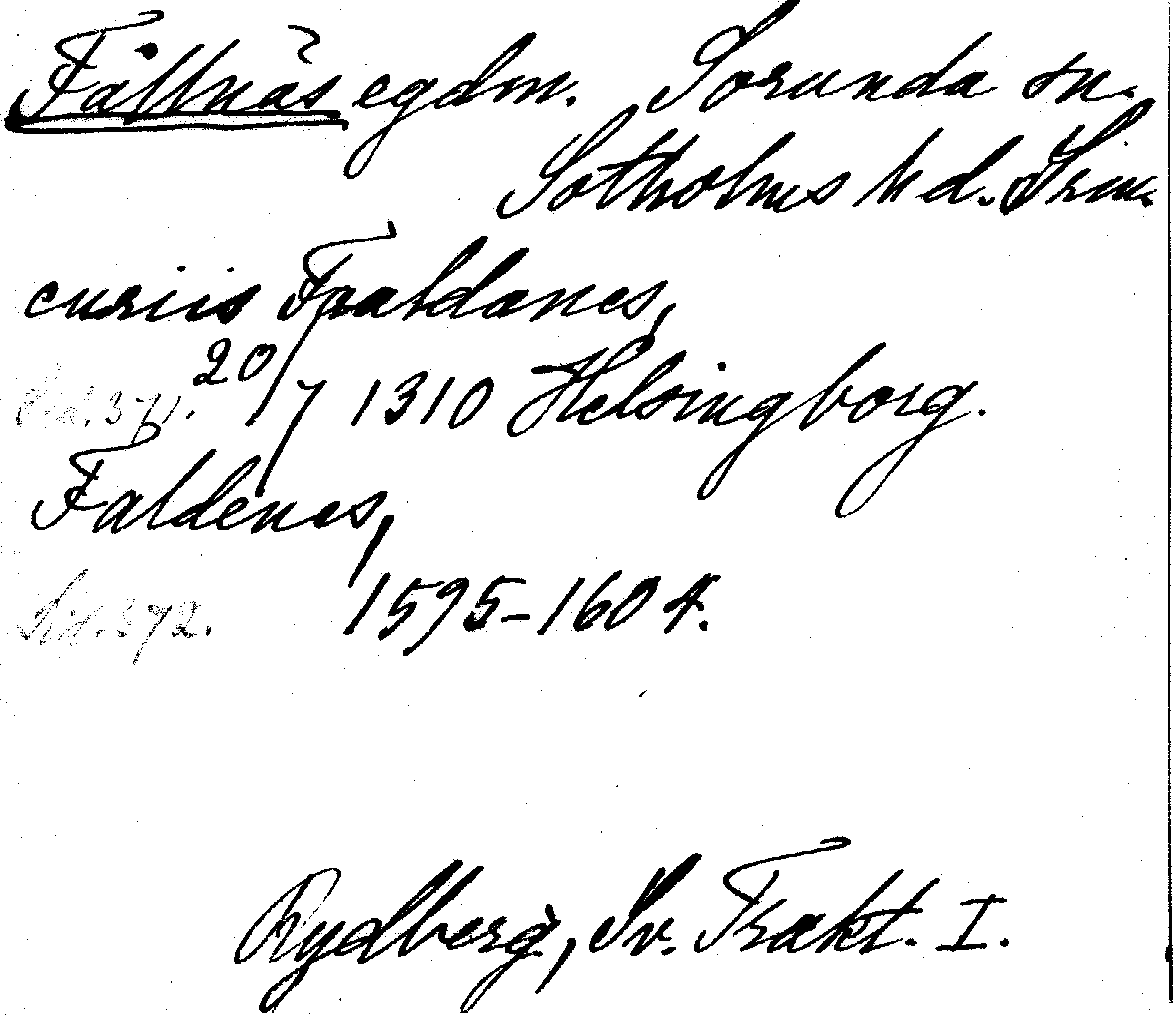 Fållnäs egdm. Sorunda sn.
Sotholms hd. Srm.
curiis Faaldanes,
Sid. 371. 20/7 1310 Helsingborg.
Faldenes,
Sid. 372. 1595-1604.
Rydberg, Sv. Trakt. I.